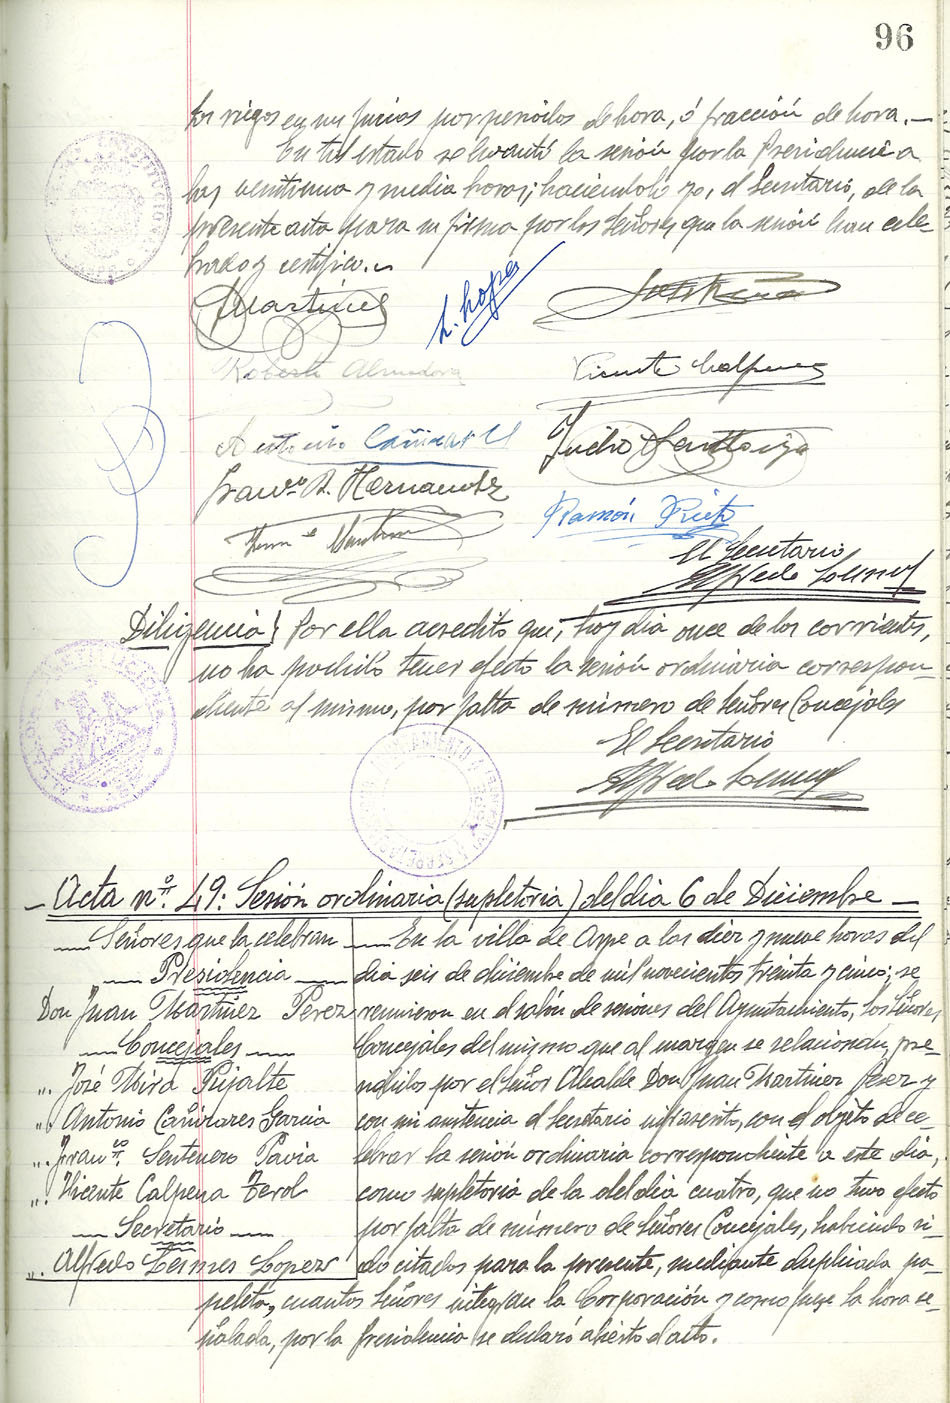 96
los riegos en su juicios por periodos de hora, ó fracción de hora.—
En tal estado se levantó la sesión por la Presidencia a
las veintiuna y media horas; haciéndolo yo, el Secretario, de la
presente acta para su firma por los Señores que la sesión han cele-
brado y certifico.
JMartinez
L. Lopez
Roberto Almodovar
Vicente Calpena
Antonio Cañizares
Franco. A. Hernandez
Ramón
El Secretario
Alfredo
Diligencia! Por ella acredito que, hoy dia once de los corrientes,
no ha podido tener efecto la sesión ordinaria correspon-
diente al mismo, por falta de número de Señores Concejales
El Secretario
Alfredo
Acta nº. 49: Sesión ordinaria (supletoria) del dia 6 de Diciembre
Señores que la celebran
Presidencia
Don Juan Martinez Perez
Concejales
". José Mira Rizalte
". Antonio Cañizares Garcia
". Franco. Sentenero Pavia
". Vicente Calpena Terol
Secretario
". Alfredo Lesmes Lopez
En la villa de Aspe a las diez y nueve horas del
dia seis de diciembre de mil novecientos treinta y cinco; se
reunieron en el salón de sesiones del Ayuntamiento, los Señores
Concejales del mismo que al margen se relacionan, pre-
sididos por el Señor Alcalde Don Juan Martinez Perez y
con mi asistencia el Secretario infrascrito, con el objeto de ce-
lebrar la sesión ordinaria correspondiente a este dia,
como supletoria de la del dia cuatro, que no tuvo efecto
por falta de número de Señores Concejales, habiendo si-
do citados para la presente, mediante duplicada pa-
peleta, cuantos Señores integran la Corporación y como fuese la hora se-
ñalada, por la Presidencia se declaró abierto el acto.